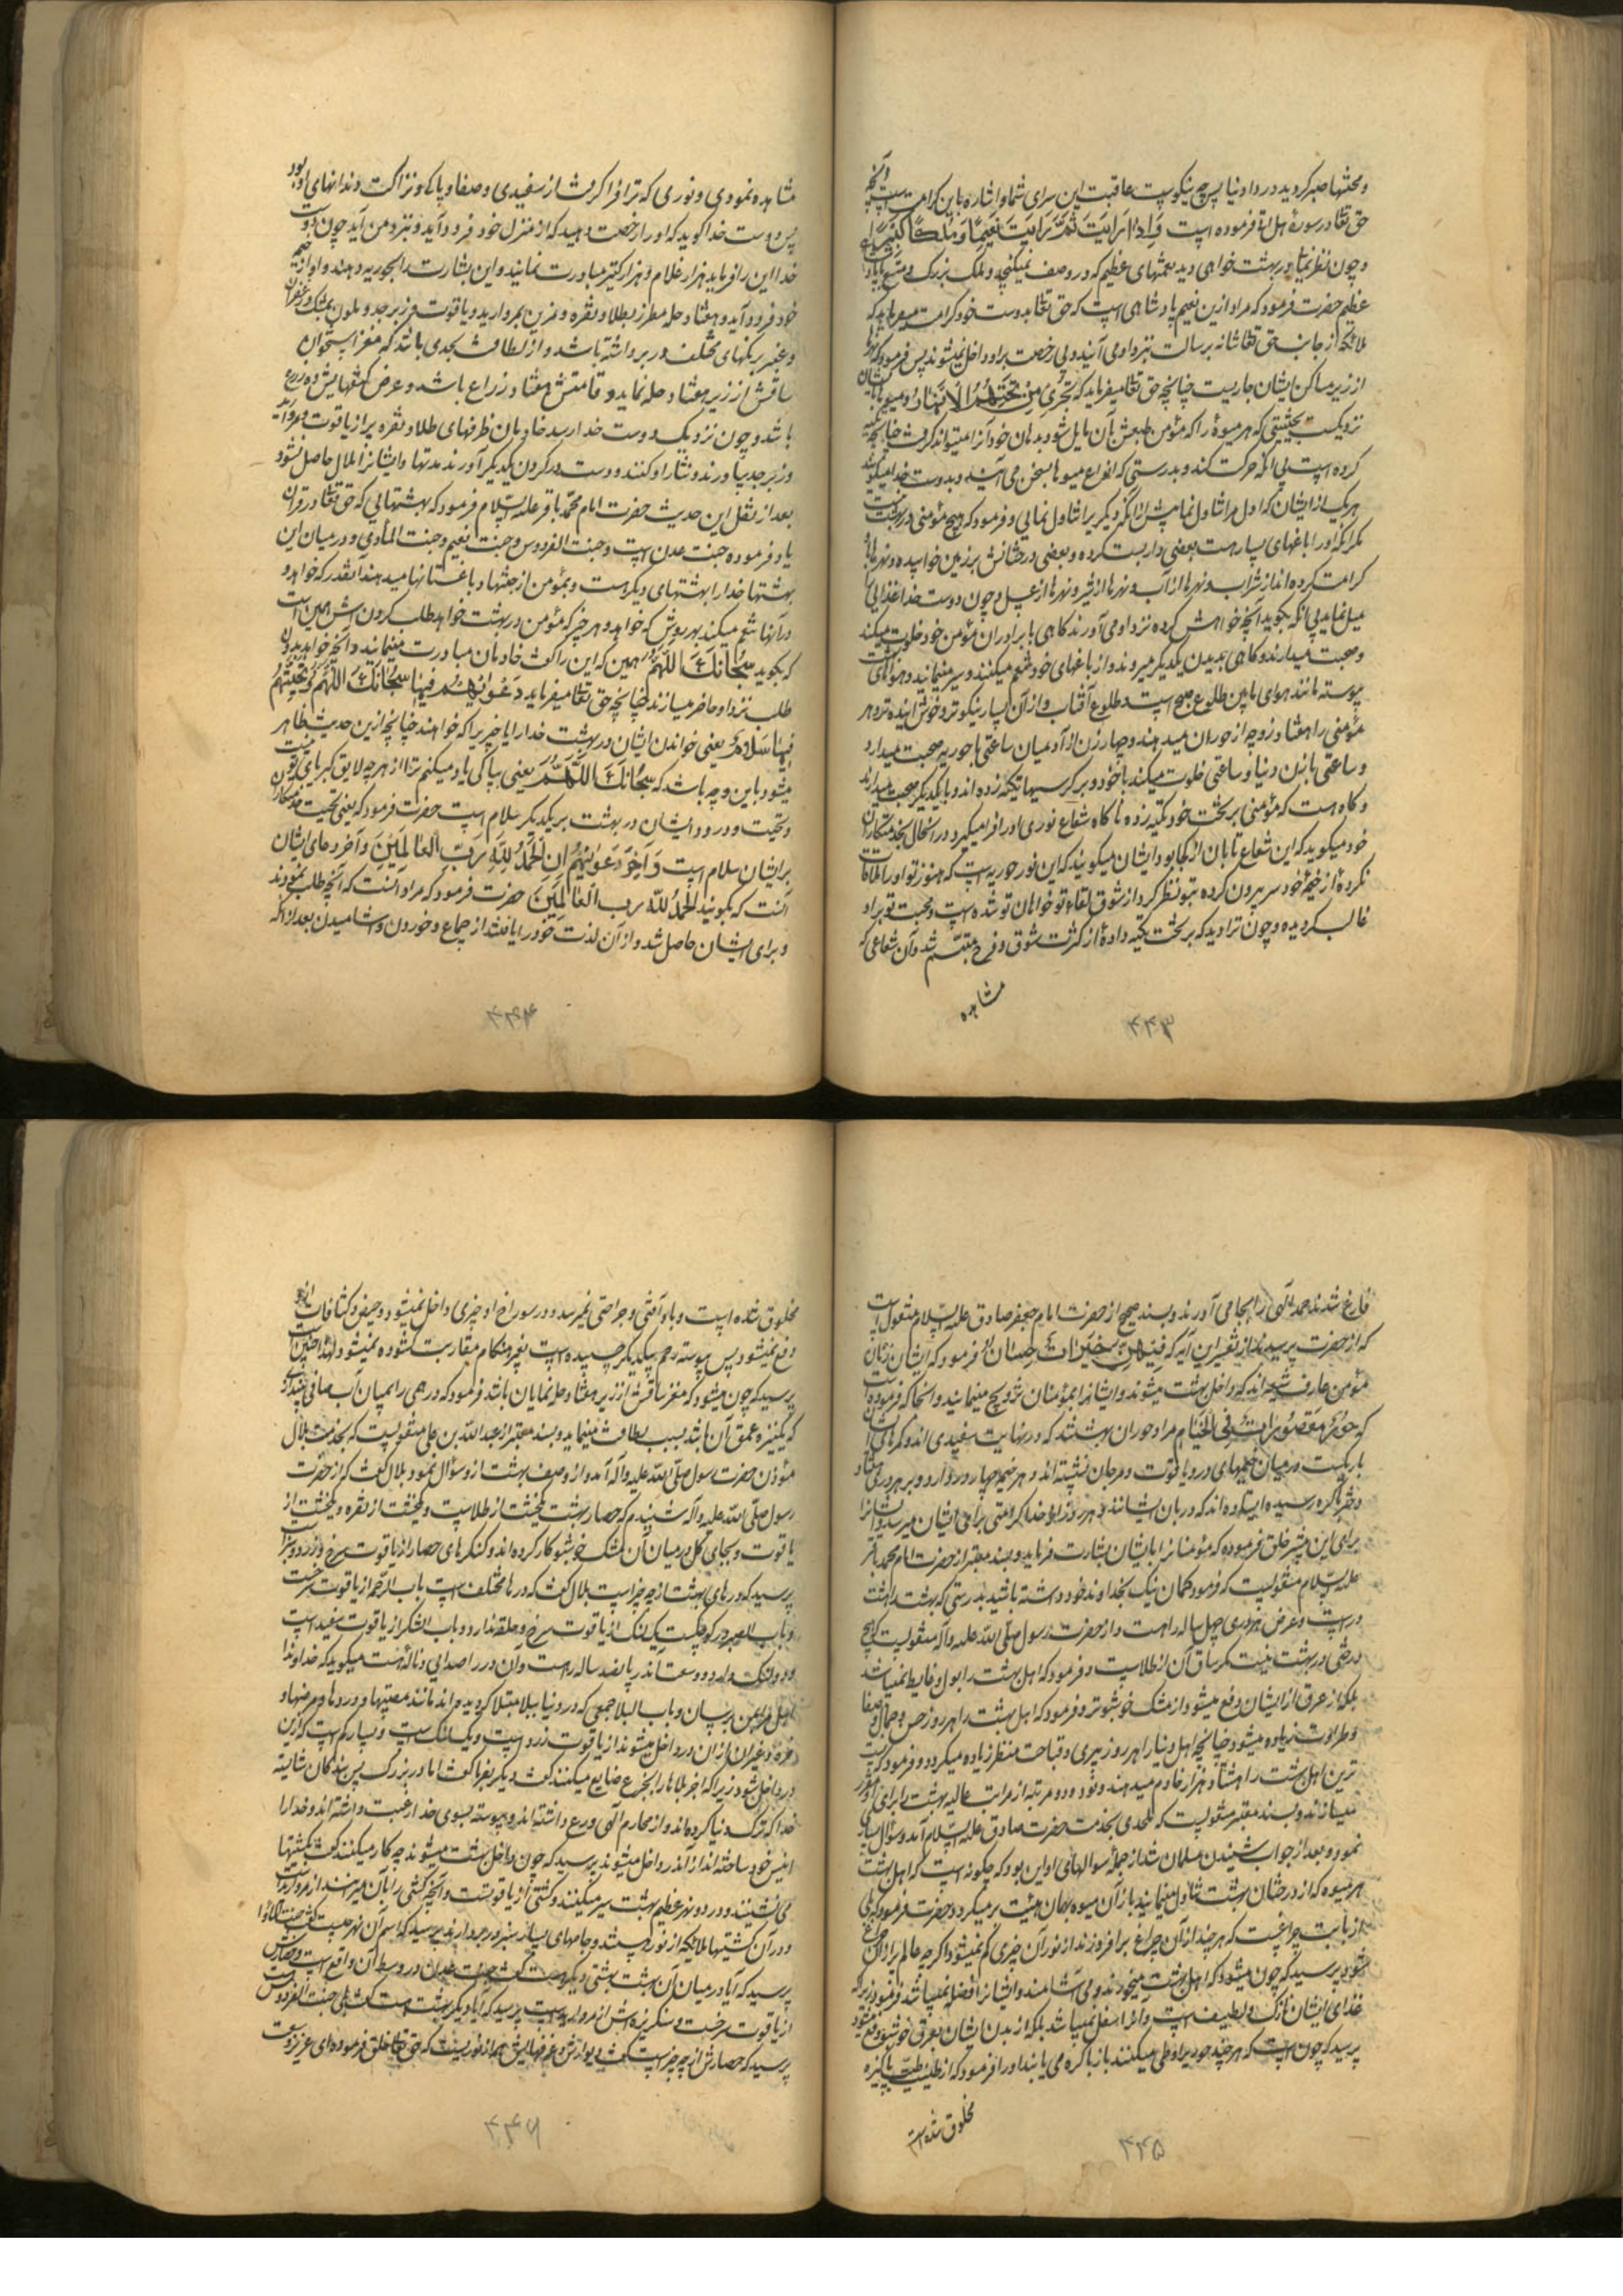 و محنتها صبر کردید در دار دنیا پس چه نیکوست عاقبت این سرای شما و اشاره باین کرامت است آنچه
حق تعالی در سورهٔ هل اتی فرموده است وَاِذا رَاَیتَ ثَمَّ رَاَیتَ نَعیمًا وَمُلکًا کَبیرًا
و چون نظر نمائی در بهشت خواهی دید نعمتهای عظیم که در وصف نمیگنجد و ملک بزرگ و
عظیم حضرت فرمود که مراد ازین نعیم پادشاهی است که حق تعالی بدوست خود کرامت میفرماید که
ملائکه از جانب حق تعالی شانه برسالت بنزد او می آیند و بی رخصت بر او داخل نمیشوند پس فرمود که نهرها
از زیر مساکن ایشان جاریست چنانچه حق تعالی میفرماید که تَجری مِن تَحتِهِمُ الاَنهار و میوها بایشان
نزدیکست بحیثیتی که هر میوهٔ را که مؤمن طبعش بآن مایل شود بدهان خود آنرا میتواند گرفت چنانچه تکیه
کرده است بی آنکه حرکت کند و بدرستی که انواع میوها بسخن می آیند و بدوست خدا میگویند
هر یک از ایشان که اول مرا تناول نما پیش از آنکه دیگر یرا تناول نمایی و فرمود که هیچ مؤمنی در بهشت نیست
مگر آنکه او را باغهای بسیار هست بعضی داربست کرده و بعضی درختانش بر زمین خوابیده و نهرها باو
کرامت کرده اند از شراب و نهرها از آب و نهرها از شیر و نهرها از عسل و چون دوست خدا غذایی
میل نماید بی آنکه بگوید آنچه خواهش کرده نزد او می آورند گاهی با برادران مؤمن خود خلوت میکند
و صحبت میدارند و گاهی بدیدن یکدیگر میروند و از باغهای خود تنعم میکنند و سیر مینمایند و هوای بهشت
پیوسته مانند هوای مابین طلوع صبح است و طلوع آفتاب و از آن بسیار نیکوتر و خوش آینده تر و هر
مؤمنی را هفتاد زوجه از حوران میدهند و چهار زن از آدمیان ساعتی با حوریه صحبت میدارد
و ساعتی با زن دنیا و ساعتی خلوت میکند با خود و بر کرسیها تکیه زده اند و با یکدیگر صحبت میدارند
و گاه هست که مؤمنی بر تخت خود تکیه زده ناگاه شعاع نوری او را فرا میگیرد در آنحال بخدمتکاران
خود میگوید که این شعاع تابان از کجا بود ایشان میگویند که این نور حوریه است که هنوز تو او را ملاقات
نکردهٔ از خیمهٔ خود سر بیرون کرده بتو نظر کرد از شوق لقاء تو خواهان تو شده است و محبت تو بر او
غالب گردیده و چون ترا دید که بر تخت تکیه دادهٔ از کثرت شوق و فرح متبسّم شد و آن شعاعی که
مشاهده
۴۴۳
مشاهده نمودی و نوری که ترا فرا گرفت از سفیدی و صفا و پاکی و نزاکت دندانهای او بود
پس دوست خدا گوید که او را رخصت دهید که از منزل خود فرود آید و بنزد من آید چون دوست
خدا این را فرماید هزار غلام و هزار کنیز مبادرت نمایند و این بشارت را بحوریه دهند و او از خیمهٔ
خود فرود آید و هفتاد حله مطرز بطلا و نقره و مزین بمروارید و یاقوت و زبرجد و ملون بمشک و زعفران
و عنبر برنگهای مختلف در بر داشته باشد و از لطافت بحدی باشد که مغز استخوان
ساقش از زیر هفتاد حله نماید و قامتش هفتاد زراع باشد و عرض کتفهایش ده زرع
باشد و چون نزدیک دوست خدا رسد خادمان ظرفهای طلا و نقره پر از یاقوت و مروارید
و زبرجد بیاورند و نثار او کنند و دست در گردن یکدیگر آورند مدتها و ایشانرا ملال حاصل نشود
بعد از نقل این حدیث حضرت امام محمّد باقر علیه السّلام فرمود که بهشتهایی که حق تعالی در قران
یاد فرموده جنت عدن است و جنت الفردوس و جنت النعیم و جنت المأوی و در میان این
بهشتها خدا را بهشتهای دیگر هست و بمؤمن از جنتها و باغستانها میدهند آنقدر که خواهد و
در آنها تنعم میکند بهر روش که خواهد و هر چیز که مؤمن در بهشت خواهد طلب کردن اش همین است
که بگوید سُبحانَکَ اللّهُمَّ همین که این را گفت خادمان مبادرت مینمایند و آنچه خواهد بدون
طلب نزد او حاضر میسازند چنانچه حق تعالی میفرماید دَعویٰهُم فیها سُبحانَکَ اللّهُمَّ وَتَحِیَّتُهُم
فیها سَلامٌ یعنی خواندن ایشان در بهشت خدا را یا چیزیرا که خواهند چنانچه ازین حدیث ظاهر
میشود باین وجه باشد که سُبحانَکَ اللّهُمَّ یعنی بپاکی یاد میکنم ترا از هر چه لایق کبریای تو نیست
و تحیت و درود ایشان در بهشت بر یکدیگر سلام است حضرت فرمود که یعنی تحیت خدمتکاران
بر ایشان سلام است وَآخِرُ دَعویٰهُم اَنِ الحَمدُ لِلّهِ رَبِّ العالَمینَ و آخر دعای ایشان
آنست که بگویند الحَمدُ لِلّهِ رب العالَمینَ حضرت فرمود که مراد آنست که آنچه طلب نمودند
و برای ایشان حاصل شد و از آن لذت خود را یافتند از جماع و خوردن و آشامیدن بعد از آنکه
۴۴۴
فارغ شدند حمد الهی را بجا می آورند و بسند صحیح از حضرت امام جعفر صادق علیه السّلام منقول است
که از حضرت پرسیدند از تفسیر این آیه که فیهِنَّ خَیراتٌ حِسانٌ فرمود که ایشان زنان
مؤمن عارف شیعه اند که داخل بهشت میشوند و ایشانرا بمؤمنان تزویج مینمایند و آنجا که فرموده است
که حُورٌ مَقصُوراتٌ فی الخِیامِ مراد حوران بهشتند که در نهایت سفیدی اند و کمرهای ایشان
باریکست در میان خیمهای در و یاقوت و مرجان نشسته اند و هر خیمه چهار در دارد و بر هر دری هفتاد
دختر باکره رسیده ایستاده اند که دربان ایشانند و هر روز از خدا کرامتی برای ایشان میرسد و ایشانرا
برای این پیشتر خلق فرموده که مؤمنانرا بایشان بشارت فرماید و بسند معتبر از حضرت امام محمد باقر
علیه السّلام منقولست که فرمود گمان نیک بخداوند خود داشته باشید بدرستی که بهشت را هشت
در است و عرض هر دری چهل ساله راهست و از حضرت رسول صلّی اللّه علیه وآله منقولست که هیچ
درختی در بهشت نیست مگر ساق آن از طلاست و فرمود که اهل بهشت را بول و غایط نمیباشد
بلکه از عرق از ایشان دفع میشود از مشک خوشبوتر و فرمود که اهل بهشت را هر روز حسن و جمال و صفا
و طراوت زیاده میشود چنانچه اهل دنیا را هر روز پیری و قباحت منظر زیاده میگردد و فرمود که پست
ترین اهل بهشت را هشتاد هزار خادم میدهند و نود و دو مرتبه از مراتب عالیه بهشت را برای او مقرر
میسازند و بسند معتبر منقولست که ملحدی بخدمت حضرت صادق علیه السّلام آمد و سؤال بسیار
نمود و بعد از جواب شنیدن مسلمان شد از جملهٔ سوالهای او این بود که چگونه است که اهل بهشت
هر میوه که از درختان بهشت تناول مینمایند باز آن میوه بهمان هیئت بر میگردد حضرت فرمود که بلی
از بابت چراغیست که هر چند از آن چراغ برافروزند از نور آن چیزی کم نمیشود اگر چه عالم پر از آن چراغ
شود پرسید که چون میشود که اهل بهشت میخورند و می آشامند و ایشانرا فضله نمیباشد فرمود زیرا که
غذای ایشان نازک و لطیف است و آنرا ثفل نمیباشد بلکه از بدن ایشان بعرق خوشبو دفع میشود
پرسید که چون است که هر چند حوریرا وطی میکنند باز باکره می یابند او را فرمود که از طینت طیّب پاکیزه
مخلوق شده است
۴۴۵
مخلوق شده است و با او آفتی و جراحتی نمیرسد و در سوراخ او چیزی داخل نمیشود و حیض و کثافات از او
دفع نمیشود پس پیوسته رحم بیکدیگر چسبیده است بغیر هنگام مقاربت گشوده نمیشود لهذا چنین است
پرسید که چون میشود که مغز ساقش از زیر هفتاد حله نمایان باشد فرمود که درهمی را میان آب صافی میندازی
که یک نیزه عمق آن باشد بسبب لطافت مینماید و بسند معتبر از عبد اللّه بن علی منقولست که بخدمت بلال
مؤذن حضرت رسول صلّی اللّه علیه وآله آمد و از وصف بهشت از و سؤال نمود بلال گفت که از حضرت
رسول صلّی اللّه علیه وآله شنیدم که حصار بهشت یکخشت از طلاست و یکخشت از نقره و یکخشت از
یاقوت و بجای گل در میان آن مشک خوشبو کار کرده اند و کنگرهای حصار از یاقوت سرخ و زرد و سبز است
پرسید که درهای بهشت از چه چیز است بلال گفت که درها مختلف است باب الرّحمه از یاقوت سرخست
و باب الصبر در کوچکیست یک لنگ از یاقوت سرخ و حلقه ندارد و باب الشکر از یاقوت سفید است
و دو لنگ دارد و وسعت آندر پانصد ساله راهست و آن در را صدایی و نالهٔ هست میگوید که خداوندا
اهل مرا بمن برسان و باب البلا جمعی که در دنیا ببلا مبتلا گردیده اند مانند مصیبتها و دردها و مرضها و
خوره و غیر آن از آن در داخل میشوند از یاقوت زرد است و یک لنگ است و بسیار کم است که ازین
در داخل شود زیرا که اجر بلاها را بجزع ضایع میکنند گفت دیگر بفرما گفت اما در بزرگ پس بندگان شایستهٔ
خدا که ترک دنیا کرده اند و از محارم الهی ورع داشته اند و پیوسته بسوی خدا رغبت داشته اند و خدا را
انیس خود ساخته اند از آندر داخل میشوند پرسید که چون داخل بهشت میشوند چه کار میکنند گفت بکشتیها
می نشینند و در دو نهر عظیم بهشت سیر میکنند و کشتی از یاقوتست و آنچه کشتی را بآن میرانند از مرواریدست
و در آن کشتیها ملائکه از نور هستند و جامهای بسیار سبز در بر دارند پرسید که اسم آن نهر چیست گفت جنت الماوا
پرسید که آیا در میان آن بهشت بهشتی دیگر هست گفت جنات عدن در وسط آن واقع است و حصارش
از یاقوت سرخست و سنگریزه اش از مروارید است پرسید که آیا دیگر بهشت هست گفت بلی جنت الفردوس
پرسید که حصارش از چه چیز است گفت دیوارش و غرفهایش همه از نوریست که حق تعالی خلق فرموده
۴۴۶